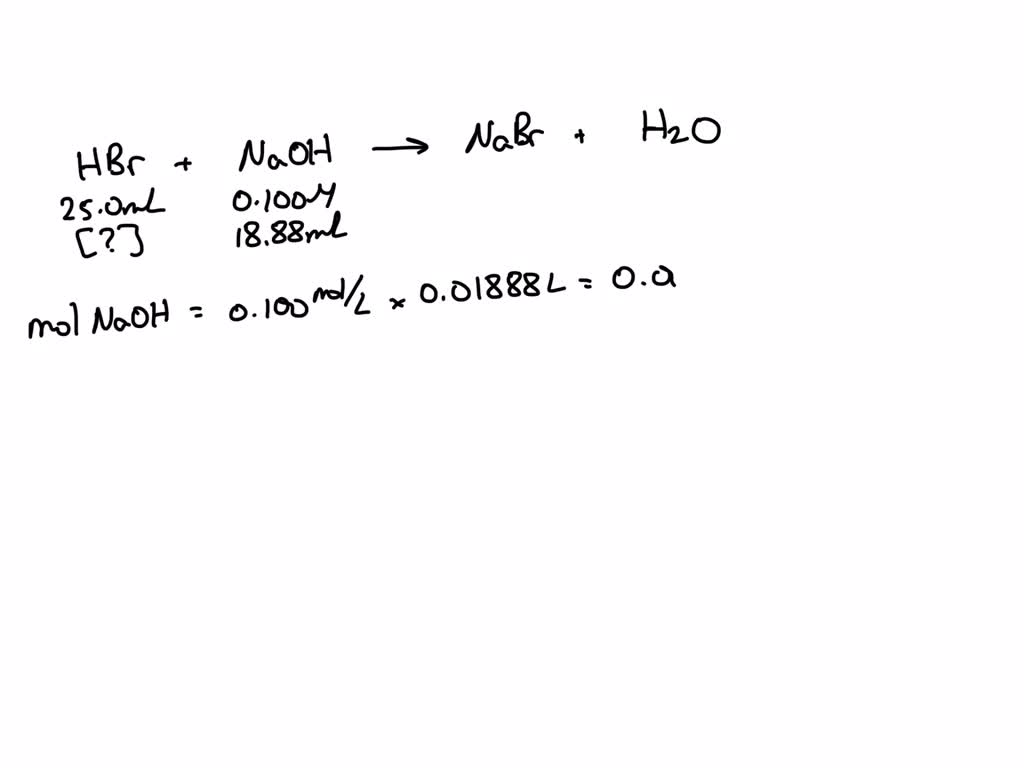 HBr + NaOH → NaBr + H2O
25.0mL 0.100M
[?] 18.88mL
mol NaOH = 0.100 mol/L × 0.01888L = 0.0